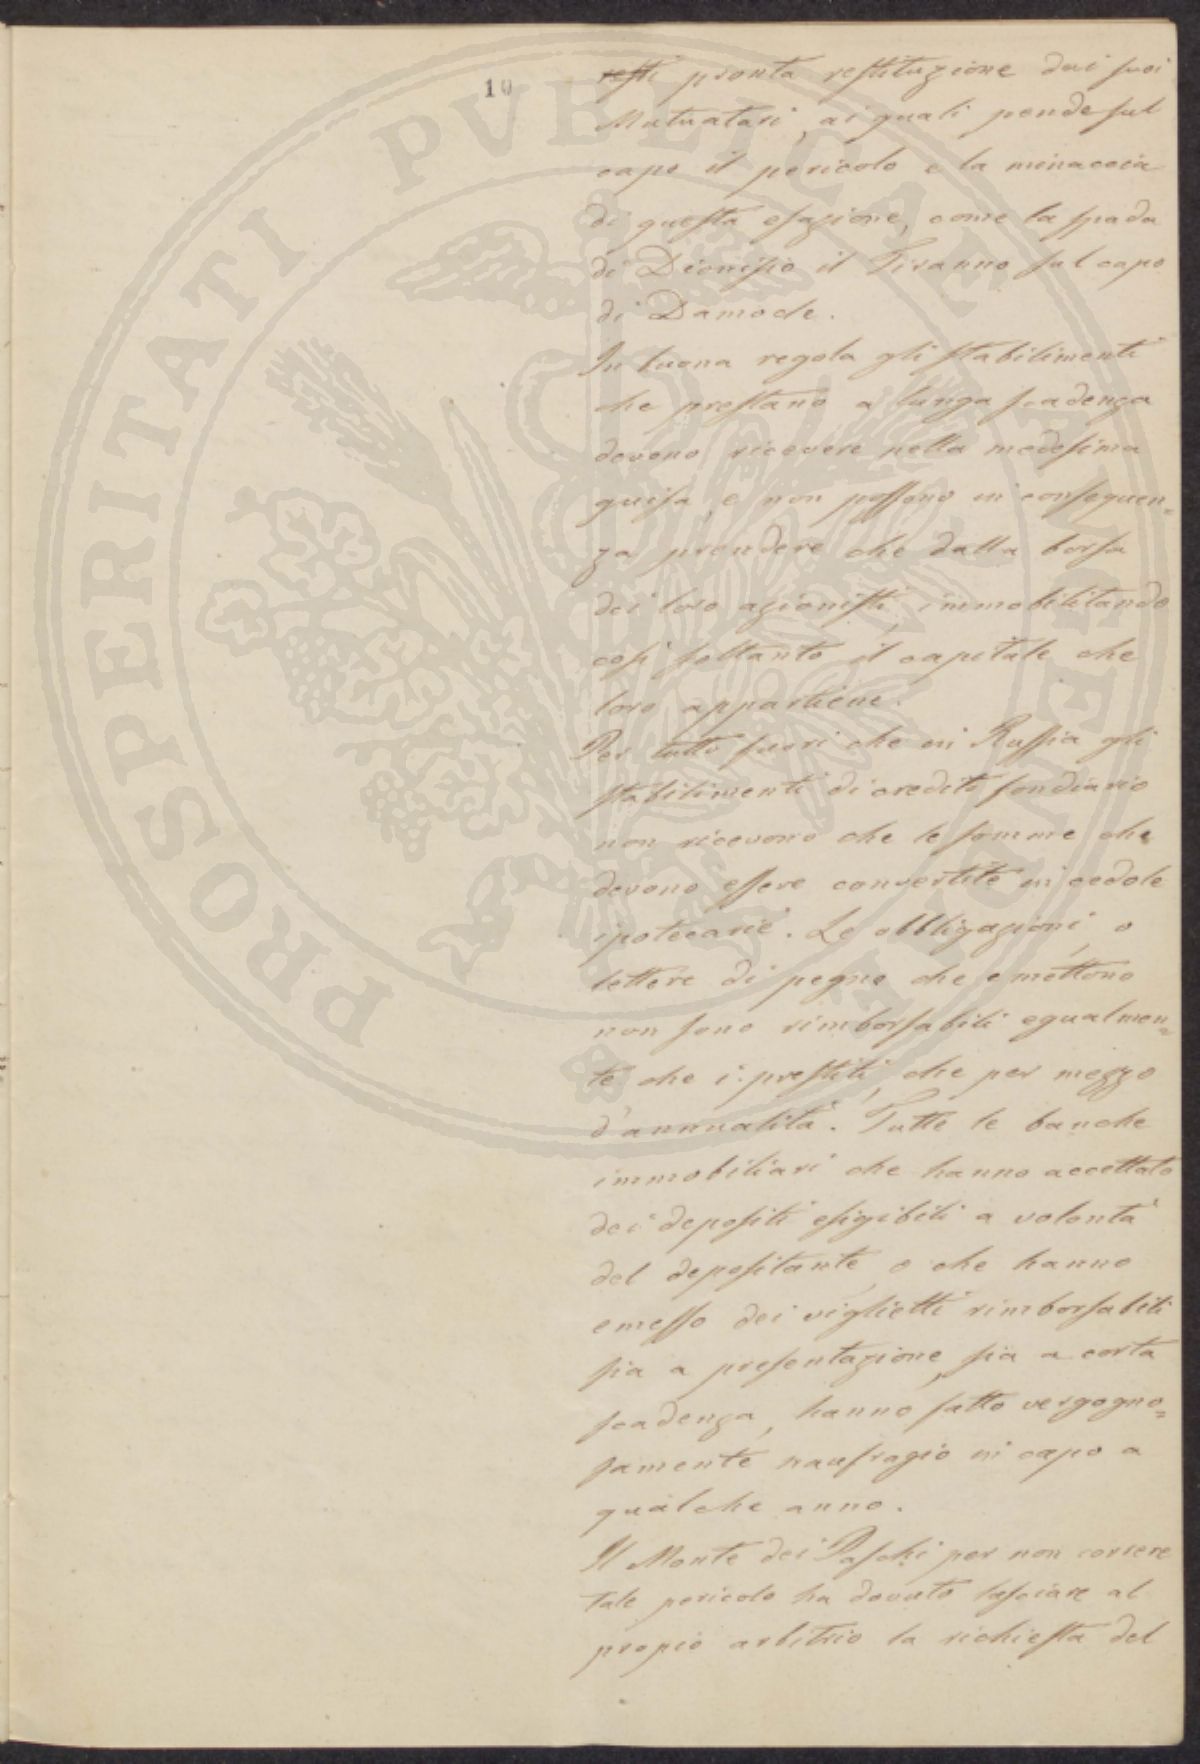 10
resti pronta restituzione dai suoi
Mutuatari, ai quali pende sul
capo il pericolo e la minaccia
di questa esazione, come la spada
di Dionisio il Tiranno sul capo
di Damocle.
In buona regola gli stabilimenti
che prestano a lunga scadenza
devono ricevere nella medesima
guisa, e non possono in conseguen=
za prendere che dalla borsa
dei loro azionisti, immobilitando
così soltanto il capitale che
loro appartiene.
Per tutto fuori che in Russia gli
stabilimenti di credito fondiario
non ricevono che le somme che
devono essere convertite in cedole
ipotecarie. Le obbligazioni, o
lettere di pegno che emettono
non sono rimborsabili egualmen=
te che i prestiti, che per mezzo
d'annualità. Tutte le banche
immobiliari che hanno accettato
dei depositi esigibili a volontà
del depositante, o che hanno
emesso dei viglietti rimborsabili
sia a presentazione, sia a corta
scadenza, hanno fatto vergogno=
samente naufragio in capo a
qualche anno.
Il Monte dei Paschi per non correre
tale pericolo ha dovuto lasciare al
propio arbitrio la richiesta del
PROSPERITATI PVBLICAE AVGENDAE